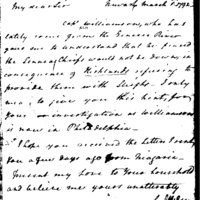 My dear Sir Newark March 5 1792
Capt Williamson, who has
lately come from the Genesee River
gave me to understand that he feared
the Seneca Chiefs would not be down, in
consequence of Kirklands refusing to
provide them with Sleighs. I only
mean to give you this hint, for
your investigation as Williamson
is now in Philadelphia.
I hope you received the letter I sent
you a few days ago from Niagara.
Present my love to your household
and believe me yours unalterably